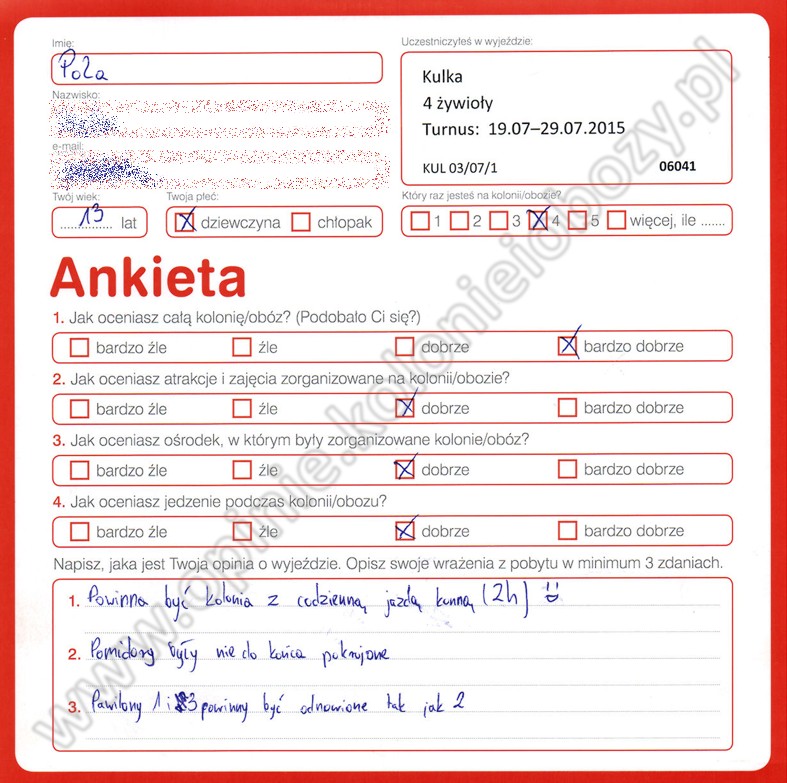 Imię:
Uczestniczyłeś w wyjeździe:
Pola
Kulka
4 żywioły
Turnus: 19.07–29.07.2015
KUL 03/07/1 06041
Nazwisko:
e-mail:
Twój wiek:
Twoja płeć:
Który raz jesteś na kolonii/obozie?
13 lat
dziewczyna chłopak
1 2 3 4 5 więcej, ile .......
Ankieta
1. Jak oceniasz całą kolonię/obóz? (Podobało Ci się?)
bardzo źle źle dobrze bardzo dobrze
2. Jak oceniasz atrakcje i zajęcia zorganizowane na kolonii/obozie?
bardzo źle źle dobrze bardzo dobrze
3. Jak oceniasz ośrodek, w którym były zorganizowane kolonie/obóz?
bardzo źle źle dobrze bardzo dobrze
4. Jak oceniasz jedzenie podczas kolonii/obozu?
bardzo źle źle dobrze bardzo dobrze
Napisz, jaka jest Twoja opinia o wyjeździe. Opisz swoje wrażenia z pobytu w minimum 3 zdaniach.
1. Powinna być kolonia z codzienną jazdą konną (2h)
2. Pomidory były nie do końca pokrojone
3. Pawilony 1 i 3 powinny być odnowione tak jak 2
www.opinie.kolonieiobozy.pl